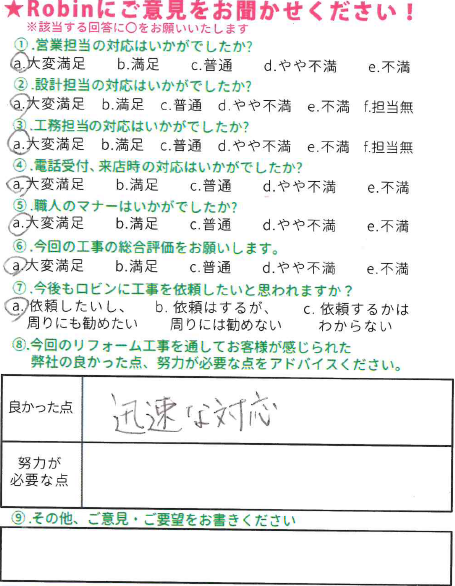 ★Robinにご意見をお聞かせください！
※該当する回答に〇をお願いいたします
①.営業担当の対応はいかがでしたか?
a.大変満足 b.満足 c.普通 d.やや不満 e.不満
②.設計担当の対応はいかがでしたか?
a.大変満足 b.満足 c.普通 d.やや不満 e.不満 f.担当無
③.工務担当の対応はいかがでしたか?
a.大変満足 b.満足 c.普通 d.やや不満 e.不満 f.担当無
④.電話受付、来店時の対応はいかがでしたか?
a.大変満足 b.満足 c.普通 d.やや不満 e.不満
⑤.職人のマナーはいかがでしたか?
a.大変満足 b.満足 c.普通 d.やや不満 e.不満
⑥.今回の工事の総合評価をお願いします。
a.大変満足 b.満足 c.普通 d.やや不満 e.不満
⑦.今後もロビンに工事を依頼したいと思われますか？
a. 依頼したいし、 b. 依頼はするが、 c. 依頼するかは
周りにも勧めたい 周りには勧めない わからない
⑧.今回のリフォーム工事を通してお客様が感じられた
弊社の良かった点、努力が必要な点をアドバイスください。
良かった点 迅速な対応
努力が
必要な点
⑨.その他、ご意見・ご要望をお書きください